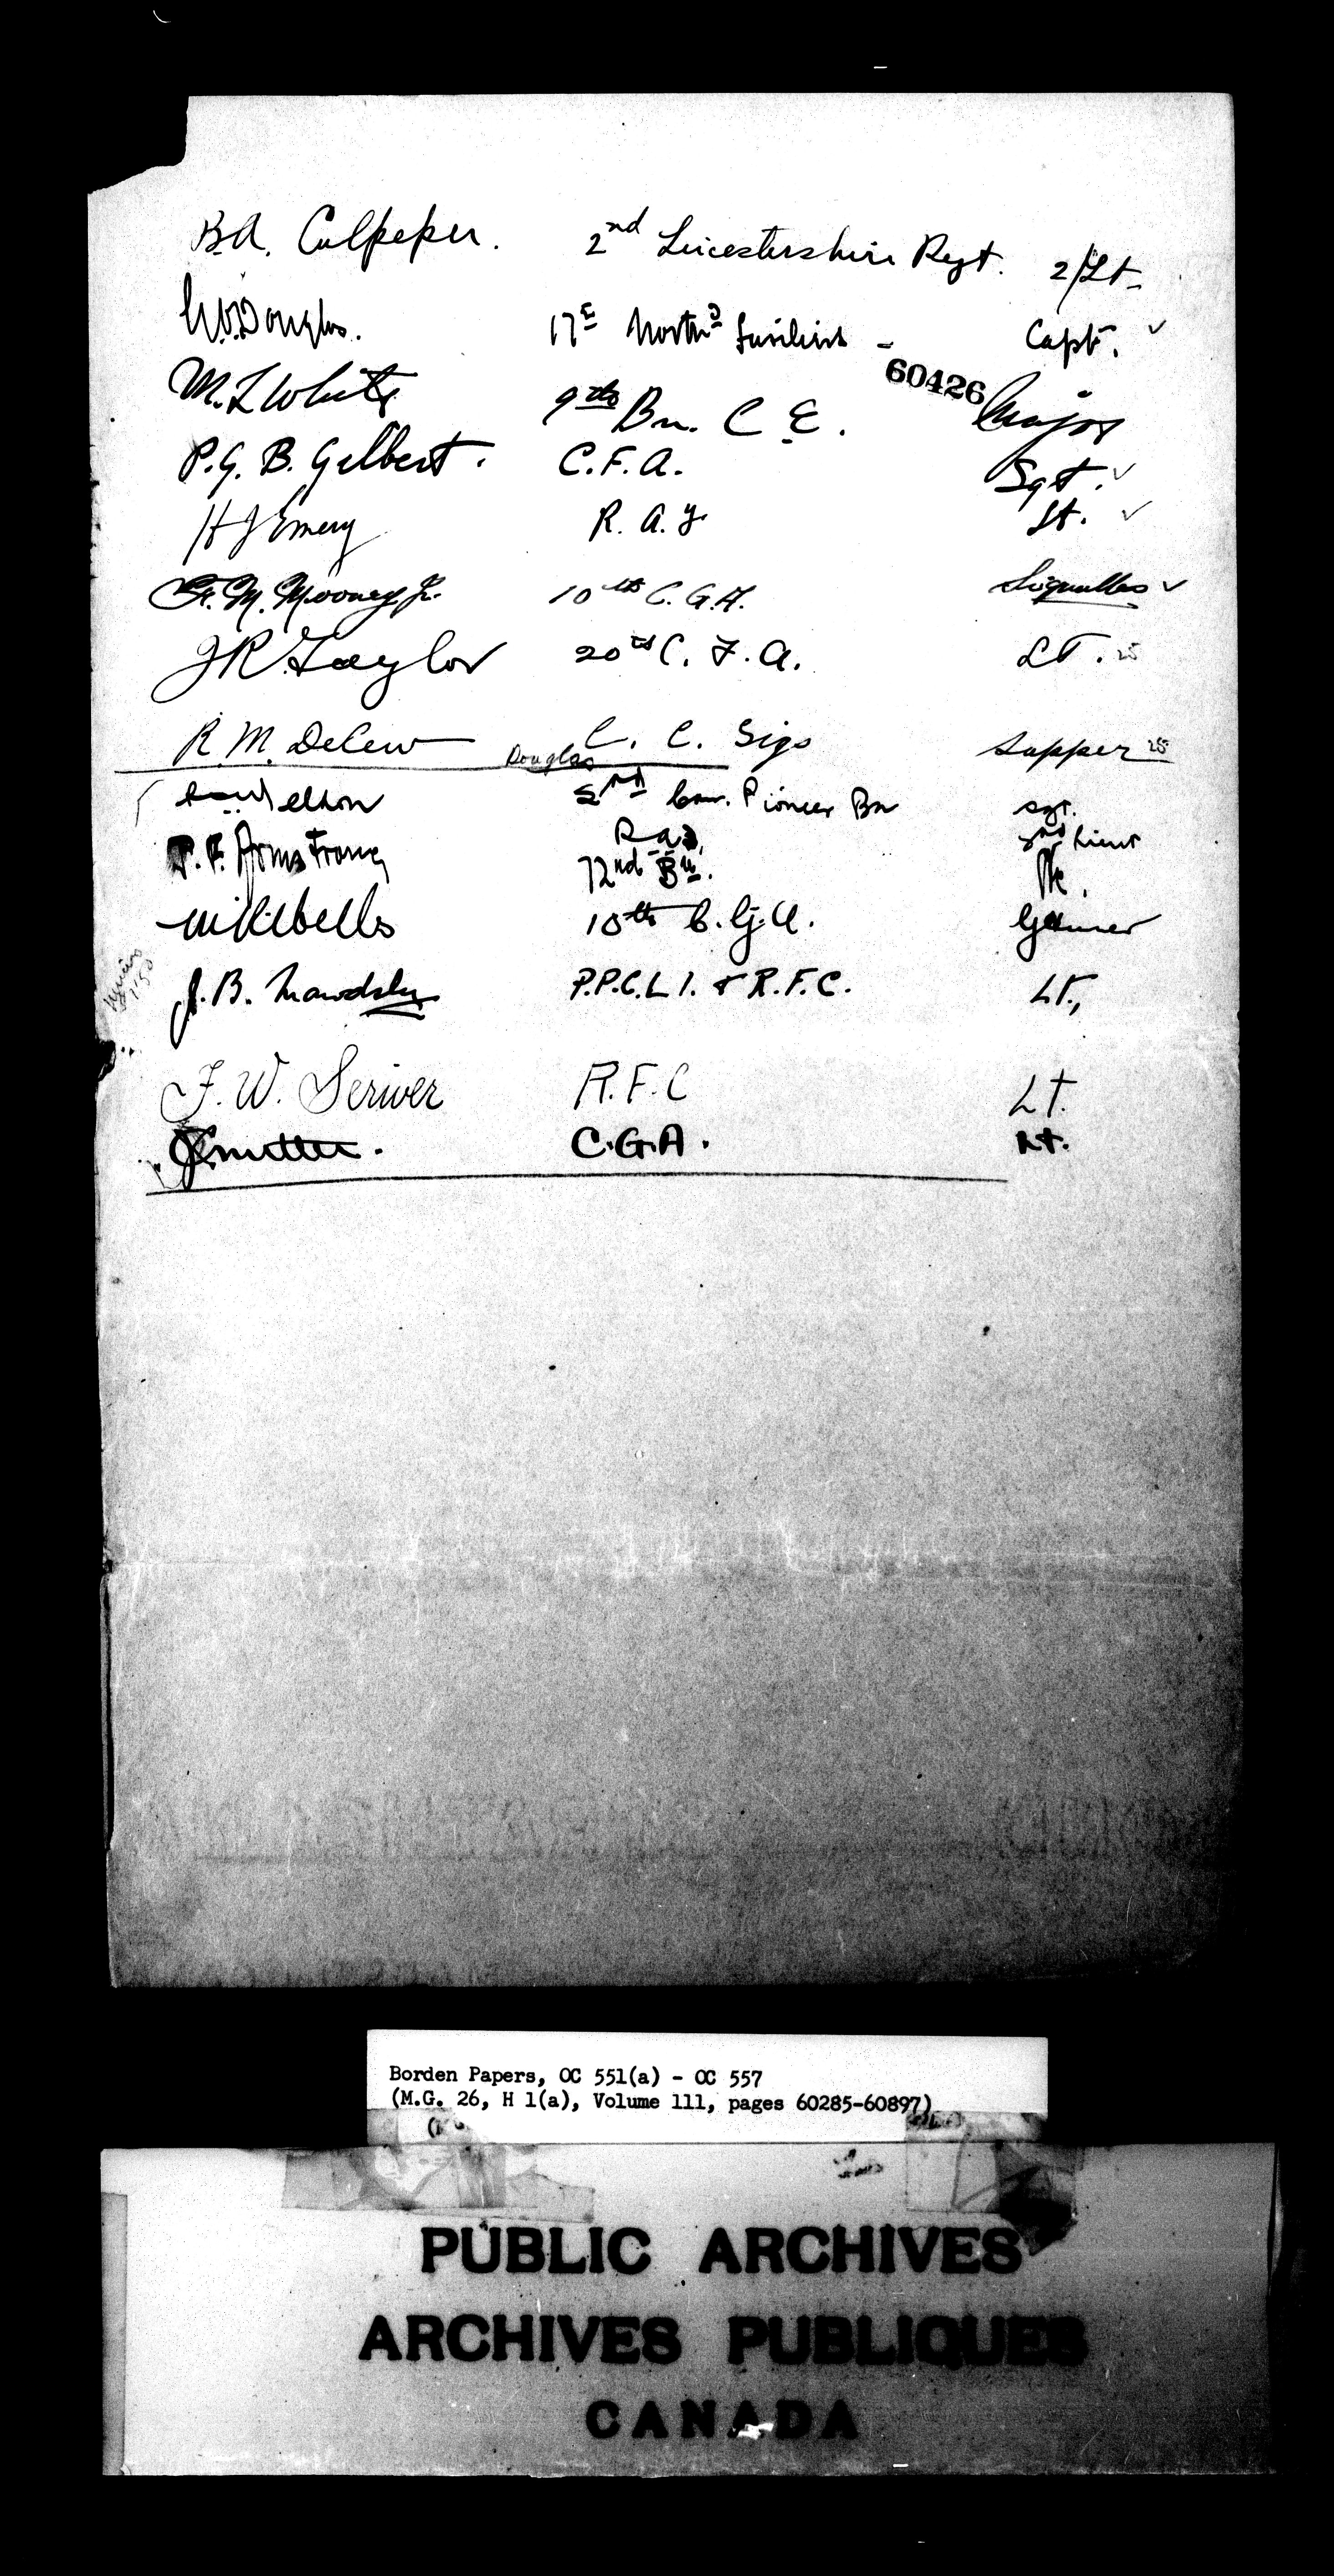 B.A. Culpeper. 2nd Leicestershire Regt. 2/Lt.
Douglas. 17th North'd Fusiliers - Capt. ✓
60426
M. L. White 9th Bn. C E. Major
P. G. B. Gilbert. C.F.A. Sgt. ✓
H J Emery R. A. F. Lt. ✓
F. M. Mooney Jr. 10th C.G.A. Signaller ✓
J R Taylor 20th C. F. A. LT. 25
R. M. DeCew C. C. Sigs Sapper 25
Douglas
2nd Can. Pioneer Bn Sgt.
P. F. Armstrong R.A.F. 2nd Lieut
72nd Bn. Pte.
10th C.G.A. Gunner
J. B. Mawdsley P.P.C.L.I. & R.F.C. LT.,
1.50
F. W. Scriver R.F.C Lt.
C.G.A. Lt.
Borden Papers, OC 551(a) - OC 557
(M.G. 26, H 1(a), Volume 111, pages 60285-60897)
PUBLIC ARCHIVES
ARCHIVES PUBLIQUES
CANADA